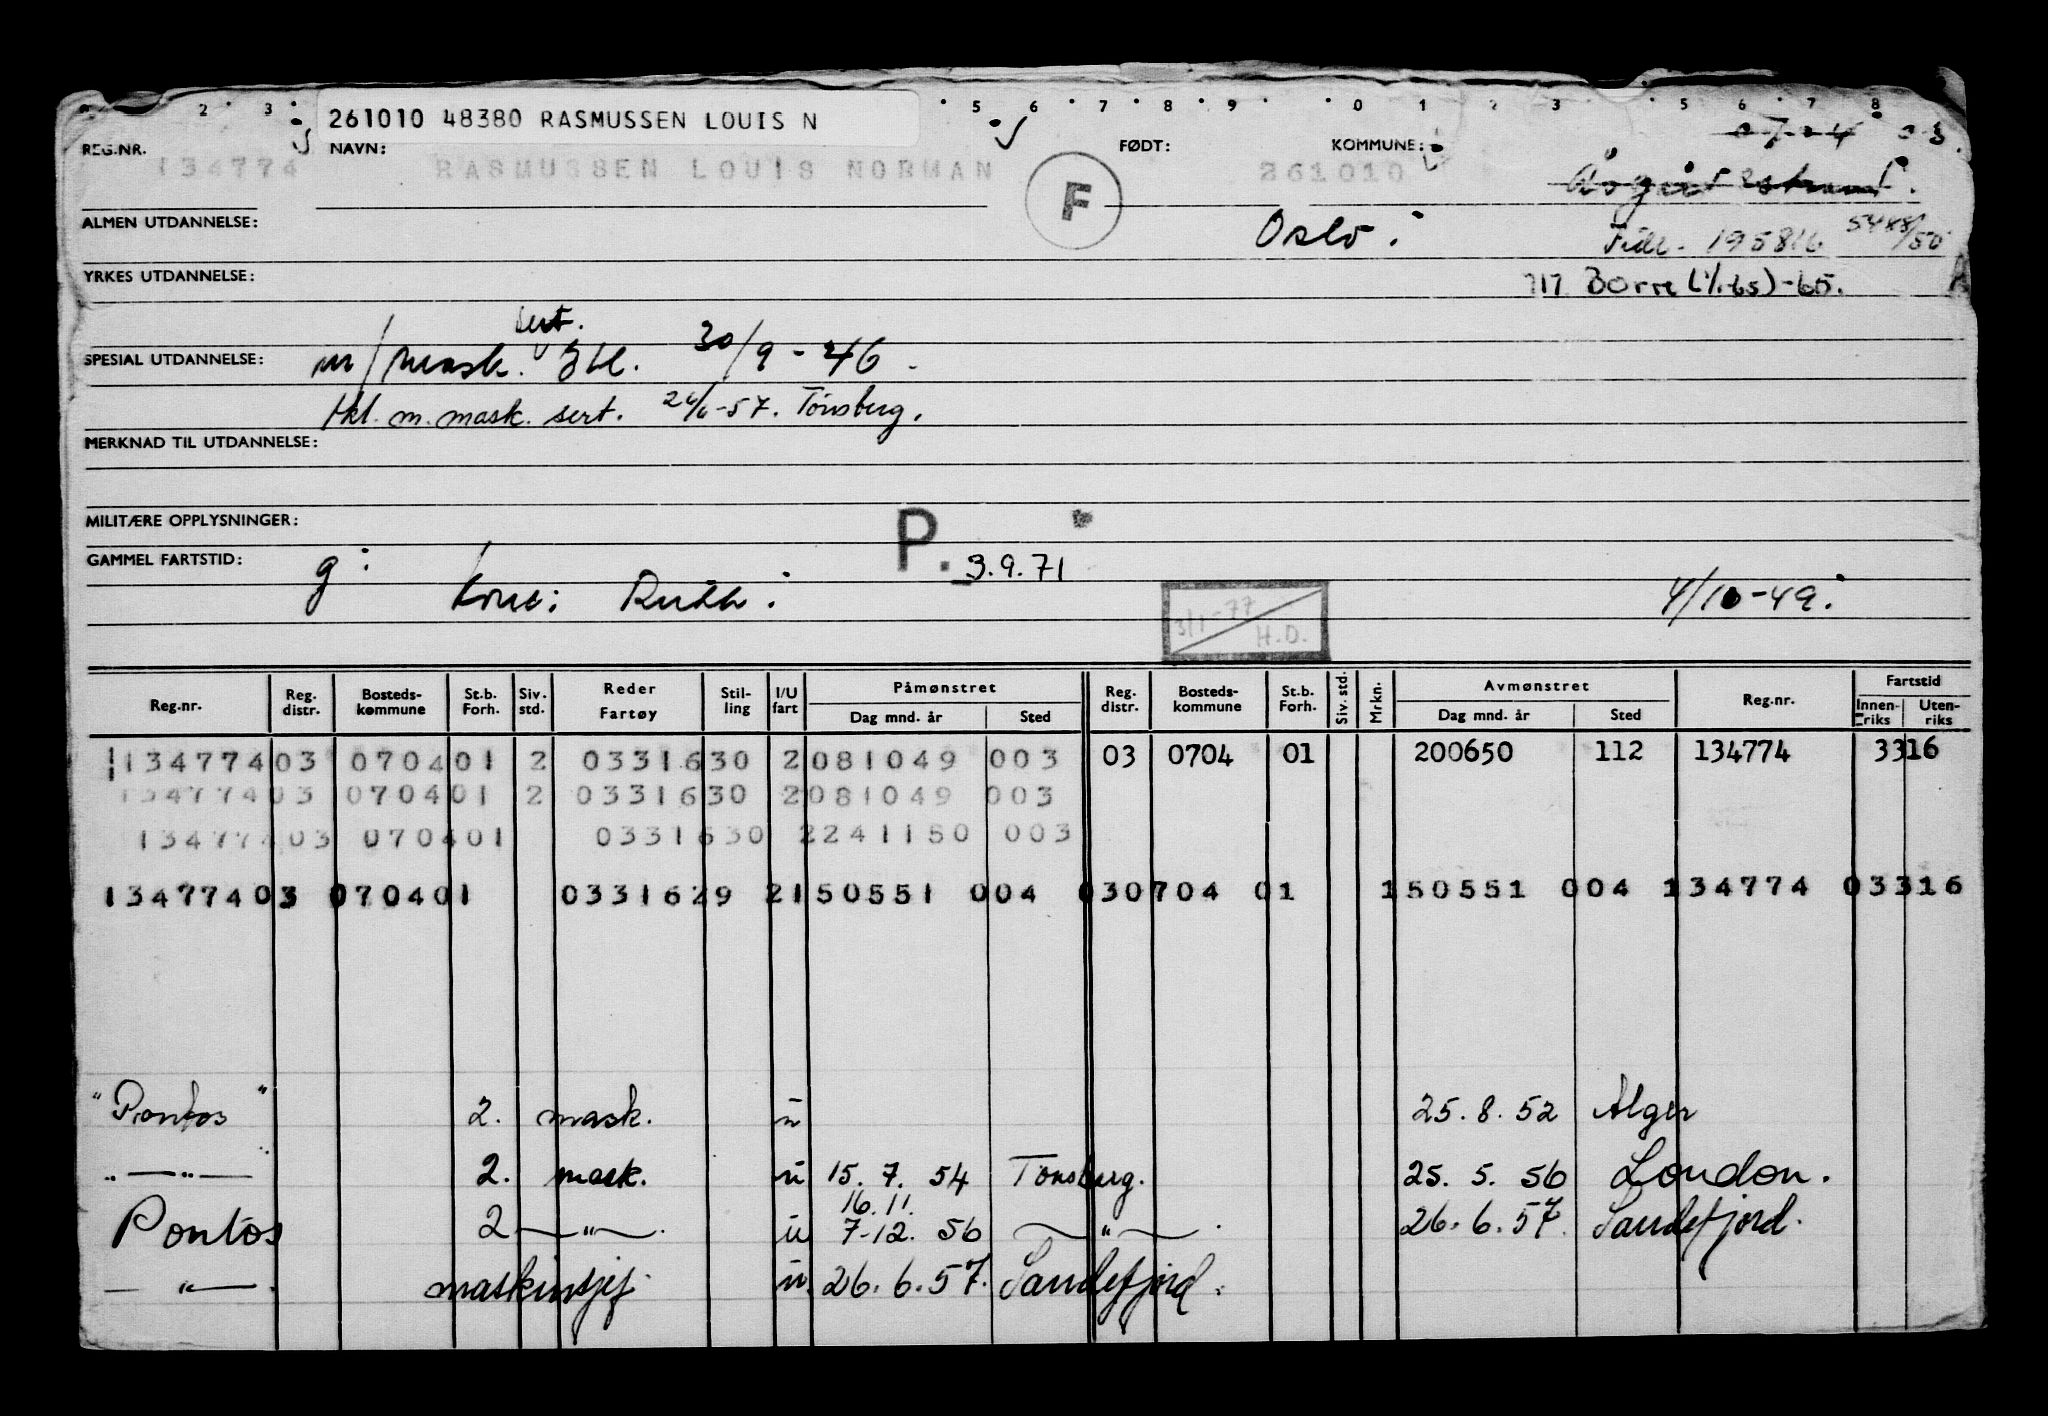 2 3 5 6 7 8 9 0 1 2 3 5 6 7 8
261010 48380 RASMUSSEN LOUIS N
REG.NR. NAVN: FØDT: KOMMUNE:
134774 RASMUSSEN LOUIS NORMAN 261010
F
ALMEN UTDANNELSE: Oslo
195816 5488/50
YRKES UTDANNELSE: 717 Borre (1/1-65)-65.
sert.
SPESIAL UTDANNELSE: m/mask. 3kl. 30/9-46
1kl. m. mask. sert. -57. Tönsberg.
MERKNAD TIL UTDANNELSE:
MILITÆRE OPPLYSNINGER: P.
GAMMEL FARTSTID: g: 3.9.71
kone: Ruth 3/1-77 H.O. 4/10-49.
Reg.nr. Reg. distr. Bosteds- kommune St.b. Forh. Siv. std. Reder Fartøy Stil- ling I/U fart Påmønstret Dag mnd. år Sted Reg. distr. Bosteds- kommune St.b. Forh. Siv. std. Mrkn. Avmønstret Dag mnd. år Sted Reg.nr. Fartstid Innen- riks Uten- riks
134774 03 0704 01 2 0331630 2 081049 003 03 0704 01 200650 112 134774 3316
134774 03 0704 01 2 0331630 2 081049 003
134774 03 0704 01 0331630 2 241150 003
134774 03 0704 01 0331629 2 150551 004 03 0704 01 150551 004 134774 03316
"Pontos" 2. mask. u 25.8.52 Alger
—"— 2. mask. u 15.7.54 Tonsberg. 25.5.56 London.
16.11.
Pontos 2 —"— u 7-12.56 —"— 26.6.57. Sandefjord.
—"— maskinsjef u. 26.6.57. Sandefjord.